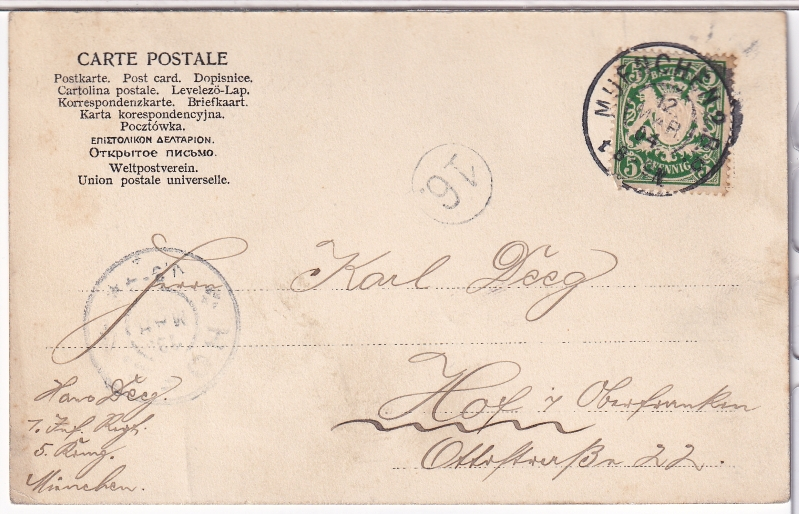 CARTE POSTALE
Postkarte. Post card. Dopisnice.
Cartolina postale. Levelező-Lap.
Korrespondenzkarte. Briefkaart.
Karta korespondencyjna.
Pocztówka.
ΕΠΙΣΤΟΛΙΚΟΝ ΔΕΛΤΑΡΙΟΝ.
Открытое письмо.
Weltpostverein.
Union postale universelle.
MUENCHEN 2
12
MAR
04
5 PFENNIG
16.
HO
MAR
Herrn Karl Deeg
Hof i/ Oberfranken
Ottostraße 22.
Hans Deeg.
1. Inf. Regt.
5. Komp.
München.